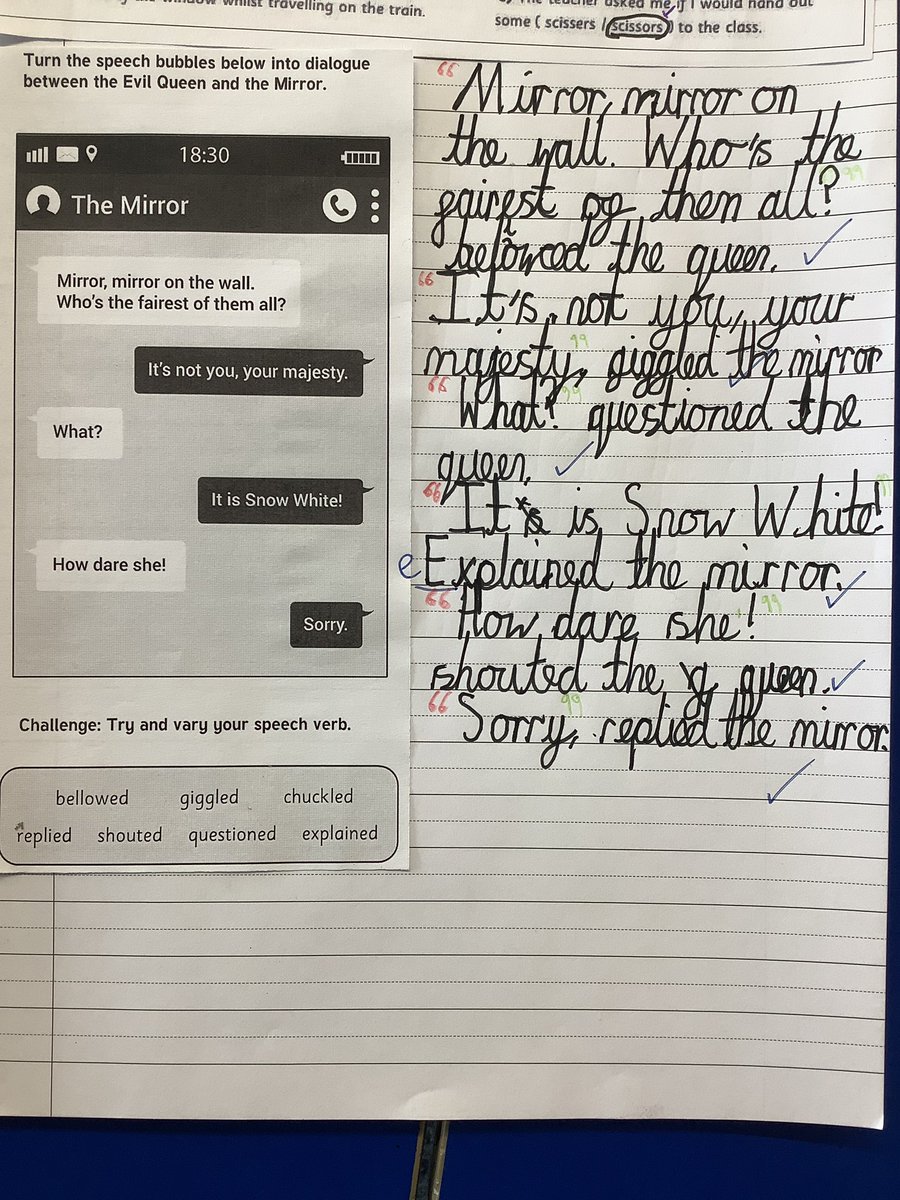 whilst travelling on the train.
teacher asked me if I would hand out
some ( scissers / scissors ) to the class.
Turn the speech bubbles below into dialogue
between the Evil Queen and the Mirror.
18:30
The Mirror
Mirror, mirror on the wall.
Who's the fairest of them all?
It's not you, your majesty.
What?
It is Snow White!
How dare she!
Sorry.
Challenge: Try and vary your speech verb.
bellowed giggled chuckled
replied shouted questioned explained
“Mirror, mirror on
the wall. Who's the
fairest of them all?”
belowed the queen.
“It's not you, your
majesty,” giggled the mirror
“What?” questioned the
queen.
“It is Snow White!”
e Explained the mirror.
“How dare she!”
shouted the queen.
“Sorry,” replied the mirror.